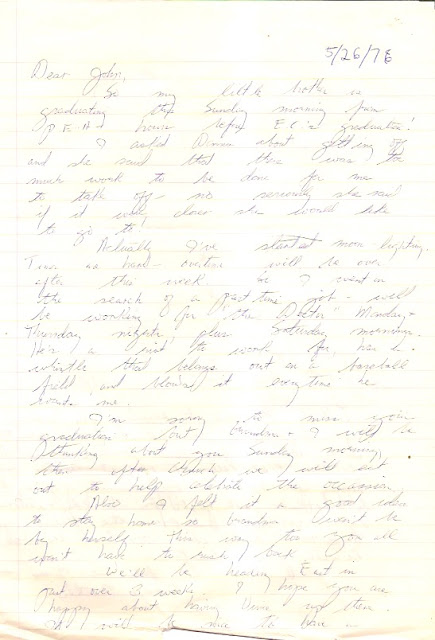 5/26/76
Dear John,
So my little brother is
graduating this Sunday morning from
P.E.A. house before E.C.'s graduation!
I asked about getting off
and she said that there was too
much work to be done for me
to take off - no seriously she said
if it was closer she would like
to go to!
Actually I've started moon lighting.
Times are hard - overtime will be over
after this week. So I went in
the search of a part time job - well
be working for "the Doctor" Monday &
Thursday nights plus Saturday mornings.
He's a to work for, has a
whistle that belongs out on a baseball
field and blows it everytime he
needs me.
I'm sorry to miss your
graduation but Grandma & I will be
thinking about you Sunday morning,
then after church we will eat
out to help celebrate the occasion.
Also I felt it a good idea
to stay home so Grandma won't be
by herself. This way you all
won't have to rush back.
We'll be heading East in
just over 2 weeks. I hope you are
happy about having us there.
It will be nice to have a